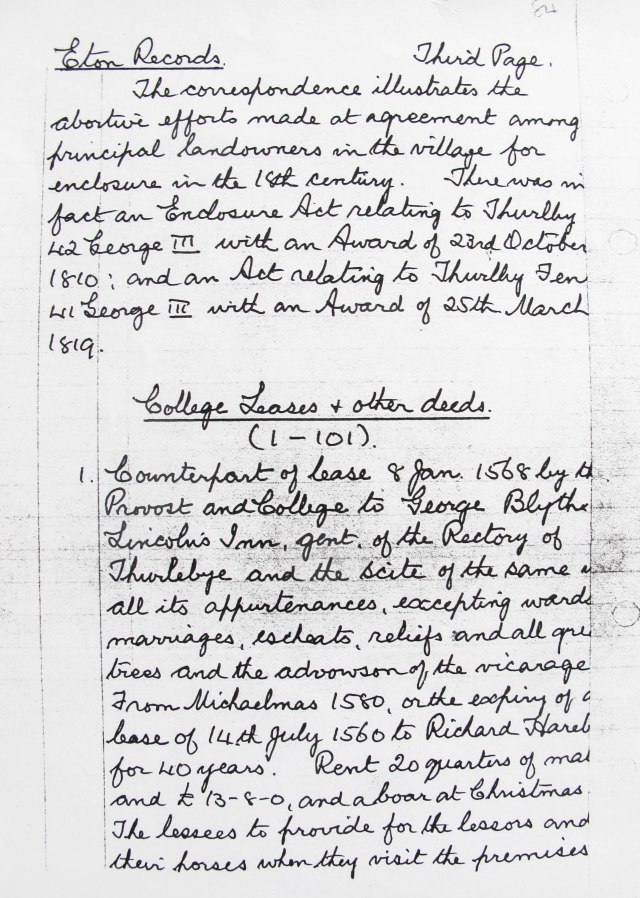 84
Eton Records. Third Page.
The correspondence illustrates the
abortive efforts made at agreement among
principal landowners in the village for
enclosure in the 18th century. There was in
fact an Enclosure Act relating to Thurlby
42 George III with an Award of 23rd October
1810; and an Act relating to Thurlby Fen
41 George III with an Award of 25th March
1819.
College Leases + other deeds.
(1 - 101).
1. Counterpart of lease 8 Jan. 1568 by th
Provost and College to George Blythe
Lincoln's Inn, gent. of the Rectory of
Thurlebye and the scite of the same w
all its appurtenances, excepting wards
marriages, escheats, reliefs and all gre
trees and the advowson of the vicarage
From Michaelmas 1580, or the expiry of a
lease of 14th July 1560 to Richard Hareb
for 40 years. Rent 20 quarters of mal
and £13-8-0, and a boar at Christmas.
The lessees to provide for the lessors and
their horses when they visit the premises